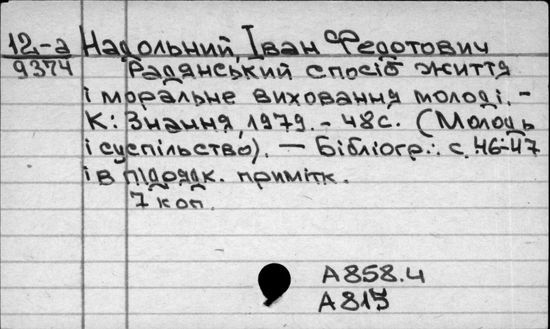 12-а Надольний, Іван Федотович
9374 Радянський спосіб життя
і моральне виховання молоді. -
К: Знання, 1979. - 48с. (Молодь
і суспільство). — Бібліогр.: с. 46-47
і в підрядк. примітк.
7 коп.
А858.4
А815